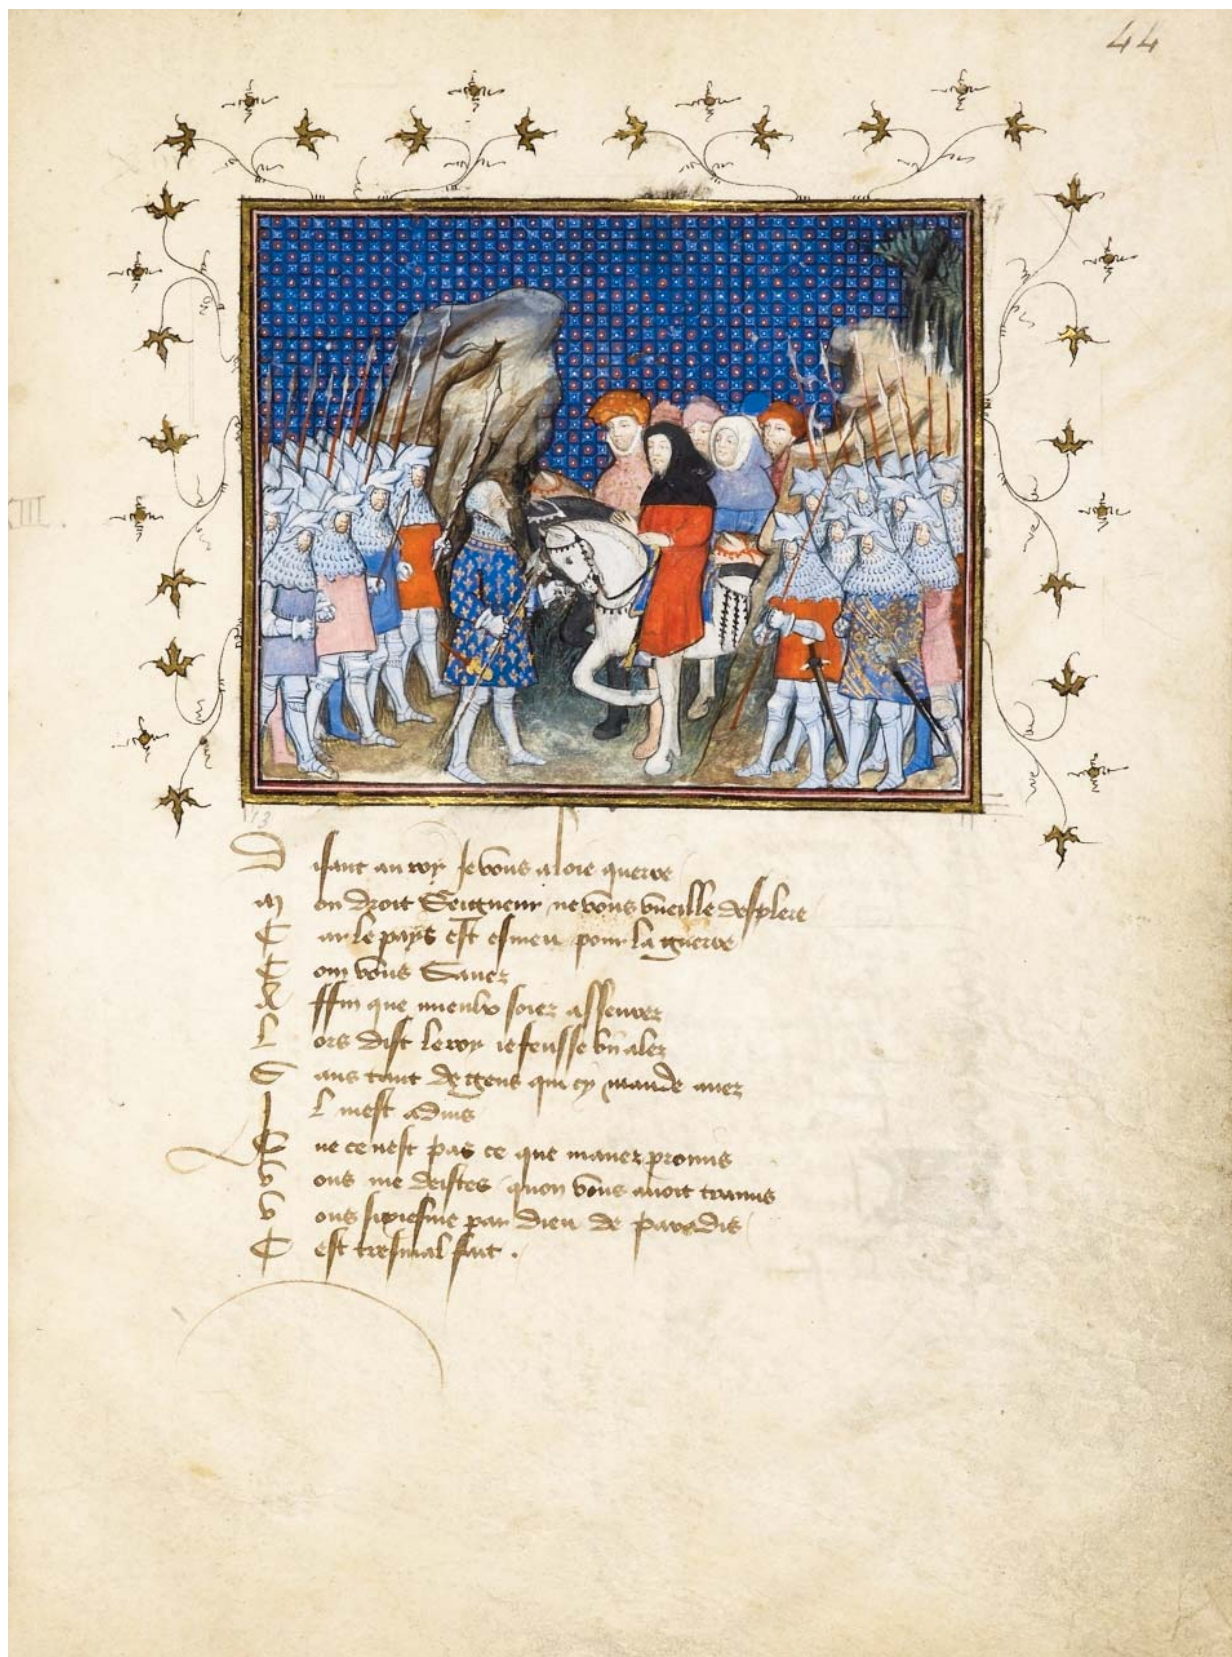 44
XIII.
13
Disant au roy Je vous aloie querre
Mon droit Seigneur ne vous vueille desplere
Car le pays est esmeu pour la guerre
Com vous Sauez
Affin que mieulx soiez asseurez
Lors dist le roy ie feusse bien alez
Sans tant de gens qui cy mande auez
Il mest aduis
Que ce nest pas ce que mauez promis
Vous me deistes quon vous auoit tramis
Vous sixiesme par dieu de paradis
Cest tresmal fait.